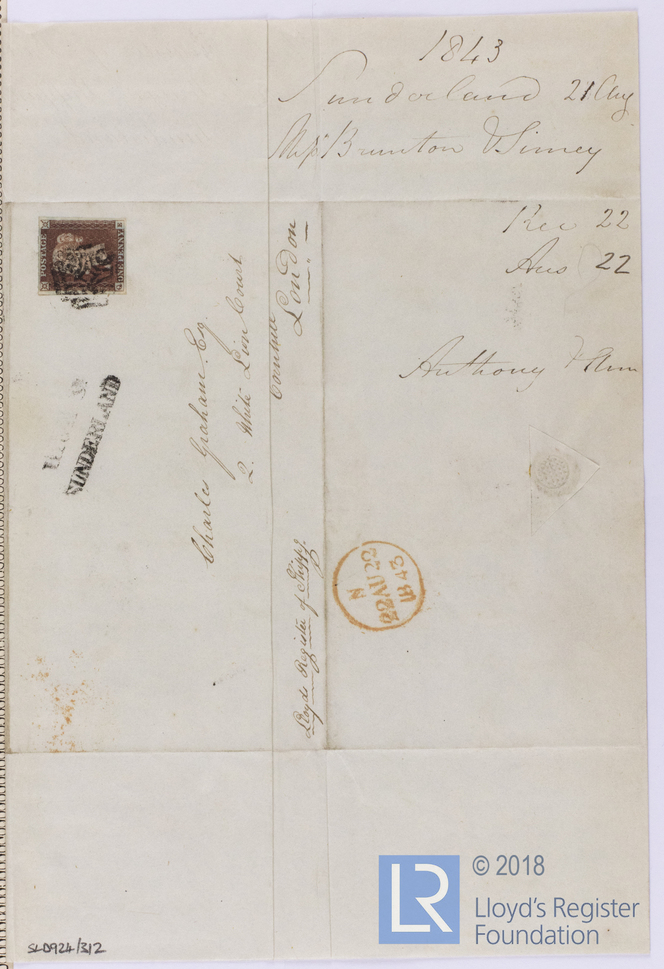 1843
Sunderland 21 Aug
Messrs Brunton & Simey
Rec 22
Ans 22
Anthony & Ann
Charles Graham Esq.
2. White Lion Court
Cornhill
London
Lloyds Register of Shipg.
POSTAGE
ONE PENNY
SUNDERLAND
N
22 AU 22
1843
SLD924/312
LR
© 2018
Lloyd's Register
Foundation